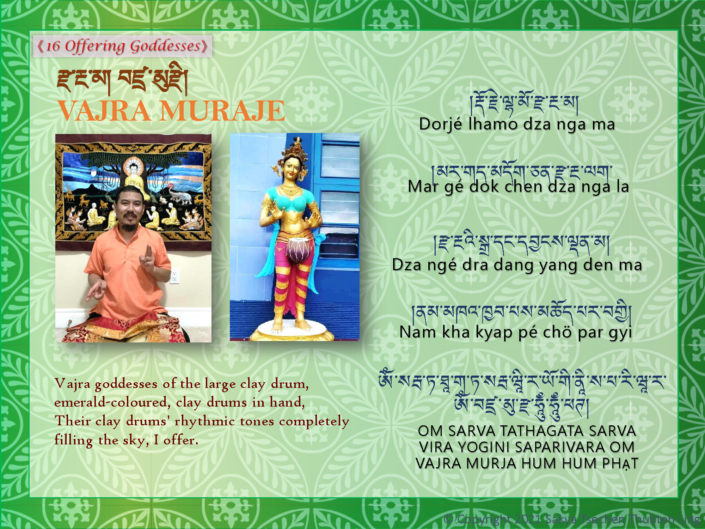 《16 Offering Goddesses》
རྫ་རྔ་མ། བཛྲ་མུརྫེ།
VAJRA MURAJE
།རྡོ་རྗེ་ལྷ་མོ་རྫ་རྔ་མ།
Dorjé lhamo dza nga ma
།མར་གད་མདོག་ཅན་རྫ་རྔ་ལག་
Mar gé dok chen dza nga la
།རྫ་རྔའི་སྒྲ་དང་དབྱངས་ལྡན་མ།
Dza ngé dra dang yang den ma
།ནམ་མཁའ་ཁྱབ་པས་མཆོད་པར་བགྱི།
Nam kha kyap pé chö par gyi
Vajra goddesses of the large clay drum,
emerald-coloured, clay drums in hand,
Their clay drums' rhythmic tones completely
filling the sky, I offer.
ༀ་སརྦ་ཏ་ཐཱ་ག་ཏ་སརྦ་ཝཱི་ར་ཡོ་གི་ནཱི་ས་པ་རི་ཝཱ་ར་
ༀ་བཛྲ་མུ་རྫ་ཧཱུྃ་ཧཱུྃ་ཕཊ།
OM SARVA TATHAGATA SARVA
VIRA YOGINI SAPARIVARA OM
VAJRA MURJA HUM HUM PHẠT